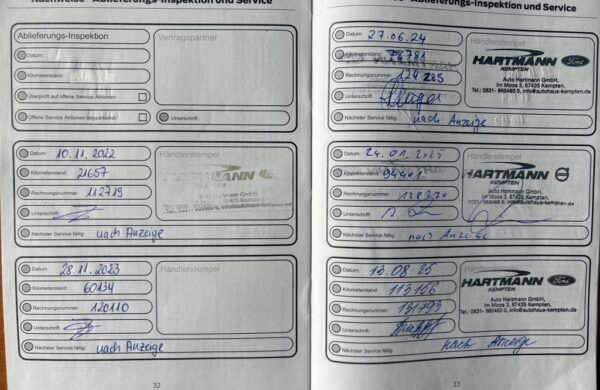 Nachweise - Ablieferungs-Inspektion und Service
Ablieferungs-Inspektion
Vertragspartner
Datum:
Kilometerstand:
Rechnungsnummer:
Überprüft auf offene Service Aktionen:
Offene Service Aktionen abgearbeitet:
Unterschrift:
Datum: 10.11.2022
Händlerstempel
Kilometerstand: 21657
Rechnungsnummer: 112719
Unterschrift:
Nächster Service fällig: nach Anzeige
Datum: 28.11.2023
Händlerstempel
Kilometerstand: 60134
Rechnungsnummer: 120110
Unterschrift:
Nächster Service fällig: nach Anzeige
32
Ablieferungs-Inspektion und Service
Datum: 27.06.24
Händlerstempel
Kilometerstand: 74781
Rechnungsnummer: 124285
Unterschrift:
HARTMANN Ford
KEMPTEN
Auto Hartmann GmbH,
Im Moos 3, 87435 Kempten,
Tel.: 0831- 960480 0, info@autohaus-kempten.de
Nächster Service fällig: nach Anzeige
Datum: 24.01.2025
Händlerstempel
Kilometerstand: 94401
Rechnungsnummer:
Unterschrift:
HARTMANN
KEMPTEN
Auto Hartmann GmbH,
Im Moos 3, 87435 Kempten,
Nächster Service fällig: nach Anzeige
Datum: 13.08.25
Händlerstempel
Kilometerstand: 113106
Rechnungsnummer: 131793
Unterschrift:
HARTMANN Ford
KEMPTEN
Auto Hartmann GmbH,
Im Moos 3, 87435 Kempten,
Tel.: 0831- 960480 0, info@autohaus-kempten.de
Nächster Service fällig: nach Anzeige
33